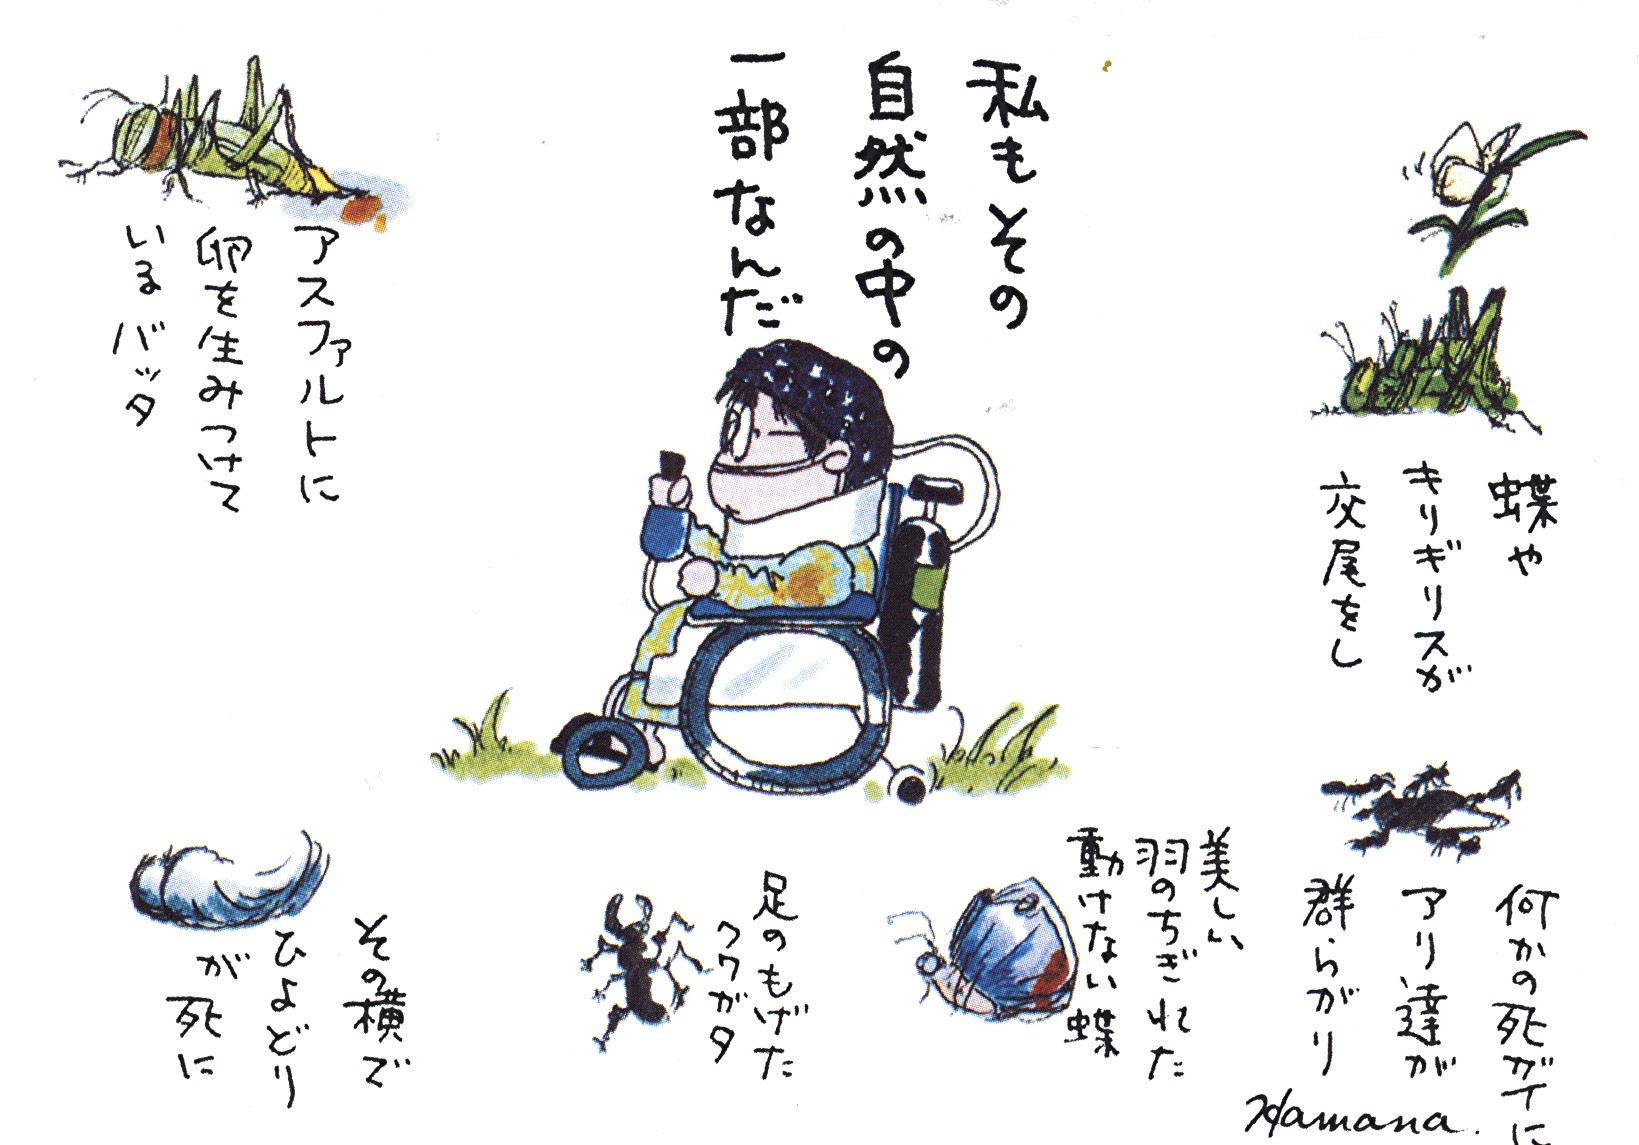 私もその
自然の中の
一部なんだ
蝶や
キリギリスが
交尾をし
何かの死ガイに
アリ達が
群らがり
美しい
羽のちぎれた
動けない蝶
足のもげた
クワガタ
その横で
ひよどり
が
死に
アスファルトに
卵を生みつけて
いるバッタ
Hamana.